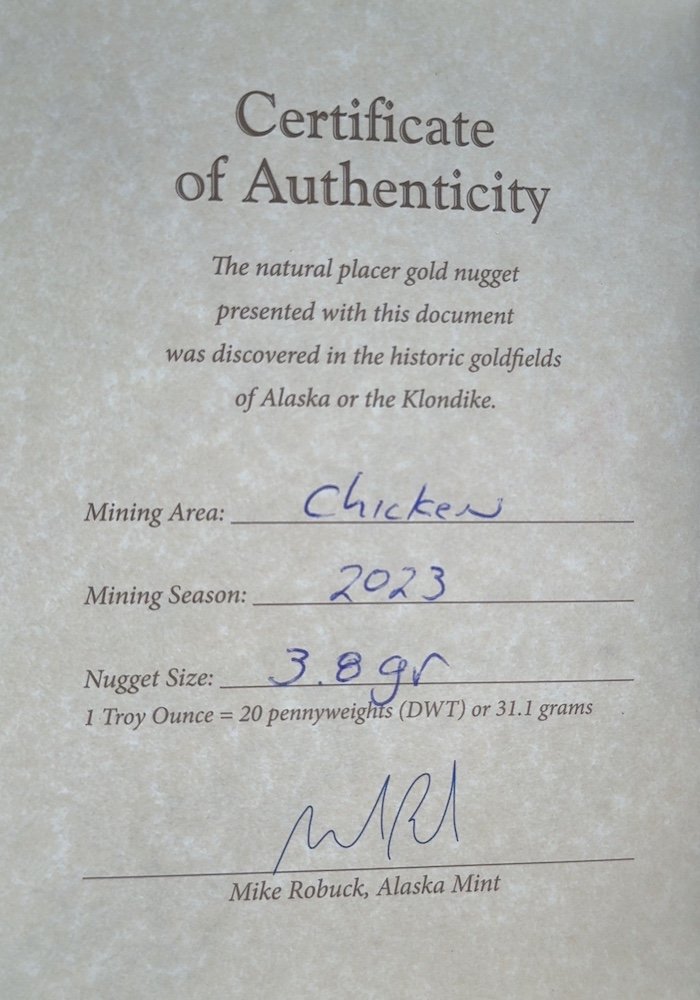 Certificate
of Authenticity
The natural placer gold nugget
presented with this document
was discovered in the historic goldfields
of Alaska or the Klondike.
Mining Area: Chicken
Mining Season: 2023
Nugget Size: 3.8 gr
1 Troy Ounce = 20 pennyweights (DWT) or 31.1 grams
Mike Robuck, Alaska Mint